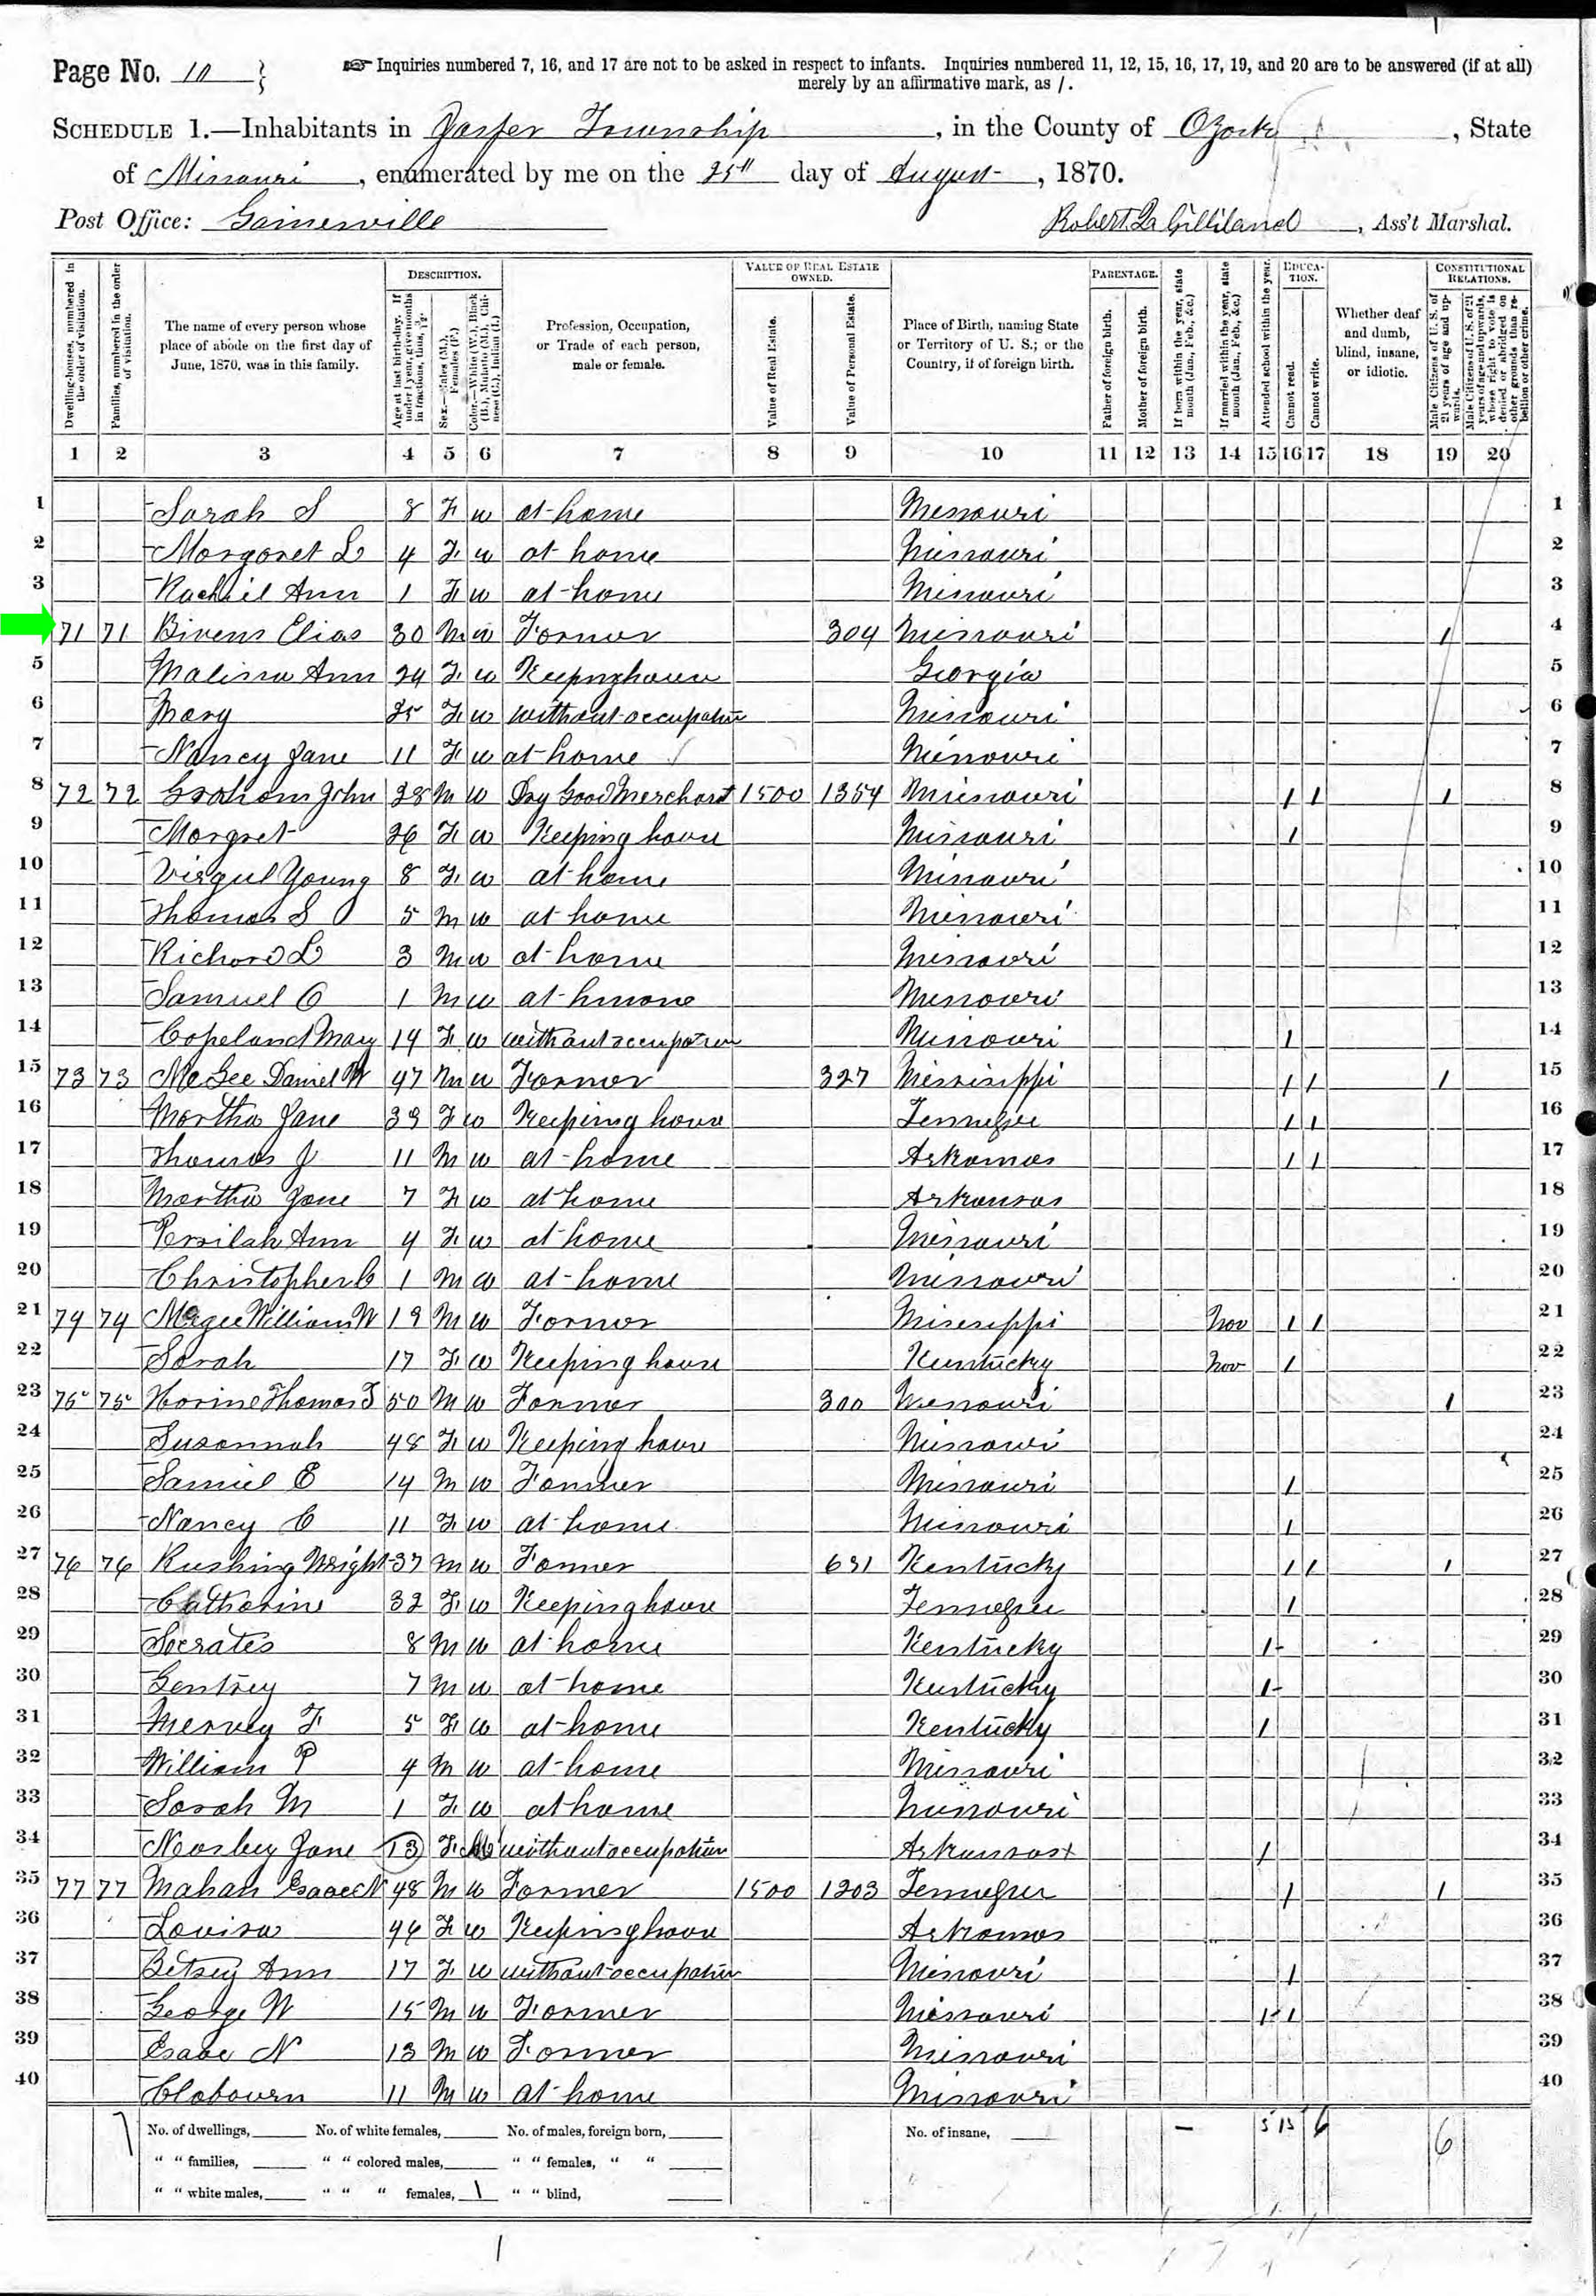 Page No. 10 }
☞ Inquiries numbered 7, 16, and 17 are not to be asked in respect to infants. Inquiries numbered 11, 12, 15, 16, 17, 19, and 20 are to be answered (if at all)
merely by an affirmative mark, as /.
SCHEDULE 1.—Inhabitants in Jasper Township, in the County of Ozark, State
of Missouri, enumerated by me on the 25th day of August, 1870.
Post Office: Gainesville Robert Q Gilliland, Ass't Marshal.
Dwelling-houses, numbered in the order of visitation.
Families, numbered in the order of visitation.
The name of every person whose place of abode on the first day of June, 1870, was in this family.
DESCRIPTION.
Age at last birth-day. If under 1 year, give months in fractions, thus, 3/12.
Sex.—Males (M.), Females (F.)
Color.—White (W.), Black (B.), Mulatto (M.), Chinese (C.), Indian (I.)
Profession, Occupation, or Trade of each person, male or female.
VALUE OF REAL ESTATE OWNED.
Value of Real Estate.
Value of Personal Estate.
Place of Birth, naming State or Territory of U. S.; or the Country, if of foreign birth.
PARENTAGE.
Father of foreign birth.
Mother of foreign birth.
If born within the year, state month (Jan., Feb., &c.)
If married within the year, state month (Jan., Feb., &c.)
Attended school within the year.
EDUCATION.
Cannot read.
Cannot write.
Whether deaf and dumb, blind, insane, or idiotic.
CONSTITUTIONAL RELATIONS.
Male Citizens of U. S. of 21 years of age and upwards.
Male Citizens of U. S. of 21 years of age and upwards, whose right to vote is denied or abridged on other grounds than rebellion or other crime.
1 2 3 4 5 6 7 8 9 10 11 12 13 14 15 16 17 18 19 20
1 Sarah S 8 F W at home Missouri 1
2 Margaret L 4 F W at home Missouri 2
3 Rachiel Ann 1 F W at home Missouri 3
4 71 71 Bivens Elias 30 M W Farmer 304 Missouri / 4
5 Malissa Ann 24 F W Keepnghouse Georgia 5
6 Mary 25 F W without occupation Missouri 6
7 Nancy Jane 11 F W at home Missouri 7
8 72 72 Graham John 28 M W Dry Good Merchant 1500 1354 Missouri / / / 8
9 Margret 26 F W Keeping house Missouri / 9
10 Virgul Young 8 F W at home Missouri 10
11 Thomas S 5 M W at home Missouri 11
12 Richard L 3 M W at home Missouri 12
13 Samuel C 1 M W at hmone Missouri 13
14 Copeland Mary 19 F W without occupation Missouri / 14
15 73 73 McGee Daniel W 47 M W Farmer 327 Mississippi / / / 15
16 Martha Jane 39 F W Keeping house Tennessee / / 16
17 Thomas J 11 M W at home Arkansas / / 17
18 Martha Jane 7 F W at home Arkansas 18
19 Ann 4 F W at home Missouri 19
20 Christopher C 1 M W at home Missouri 20
21 74 74 Magee William W 19 M W Farmer Missisippi Nov / / 21
22 Sarah 17 F W Keeping house Kentucky Nov / 22
23 75 75 Horine Thomas J 50 M W Farmer 300 Missouri / 23
24 Susannah 48 F W Keeping house Missouri 24
25 Samuel E 14 M W Farmer Missouri / 25
26 Nancy C 11 F W at home Missouri / 26
27 76 76 Rushing Wright 37 M W Farmer 631 Kentucky / / / 27
28 Catharine 32 F W Keeping house Tennessee / 28
29 Socrates 8 M W at home Kentucky / 29
30 Gentrey 7 M W at home Kentucky / 30
31 F 5 F W at home Kentucky / 31
32 William P 4 M W at home Missouri 32
33 Sarah M 1 F W at home Missouri 33
34 Jane 13 F without occupation Arkansas / 34
35 77 77 Mahan Isaac N 48 M W Farmer 1500 1203 Tennessee / / 35
36 Louisa 46 F W Keeping house Arkansas 36
37 Betsey Ann 17 F W without occupation Missouri / 37
38 George W 15 M W Farmer Missouri / / 38
39 Isaac N 13 M W Farmer Missouri 39
40 Clabourn 11 M W at home Missouri 40
No. of dwellings, No. of white females, No. of males, foreign born, No. of insane, 5 13 6 6
" " families, " " colored males, " " females, " "
" " white males, " " " females, 1 " " blind,